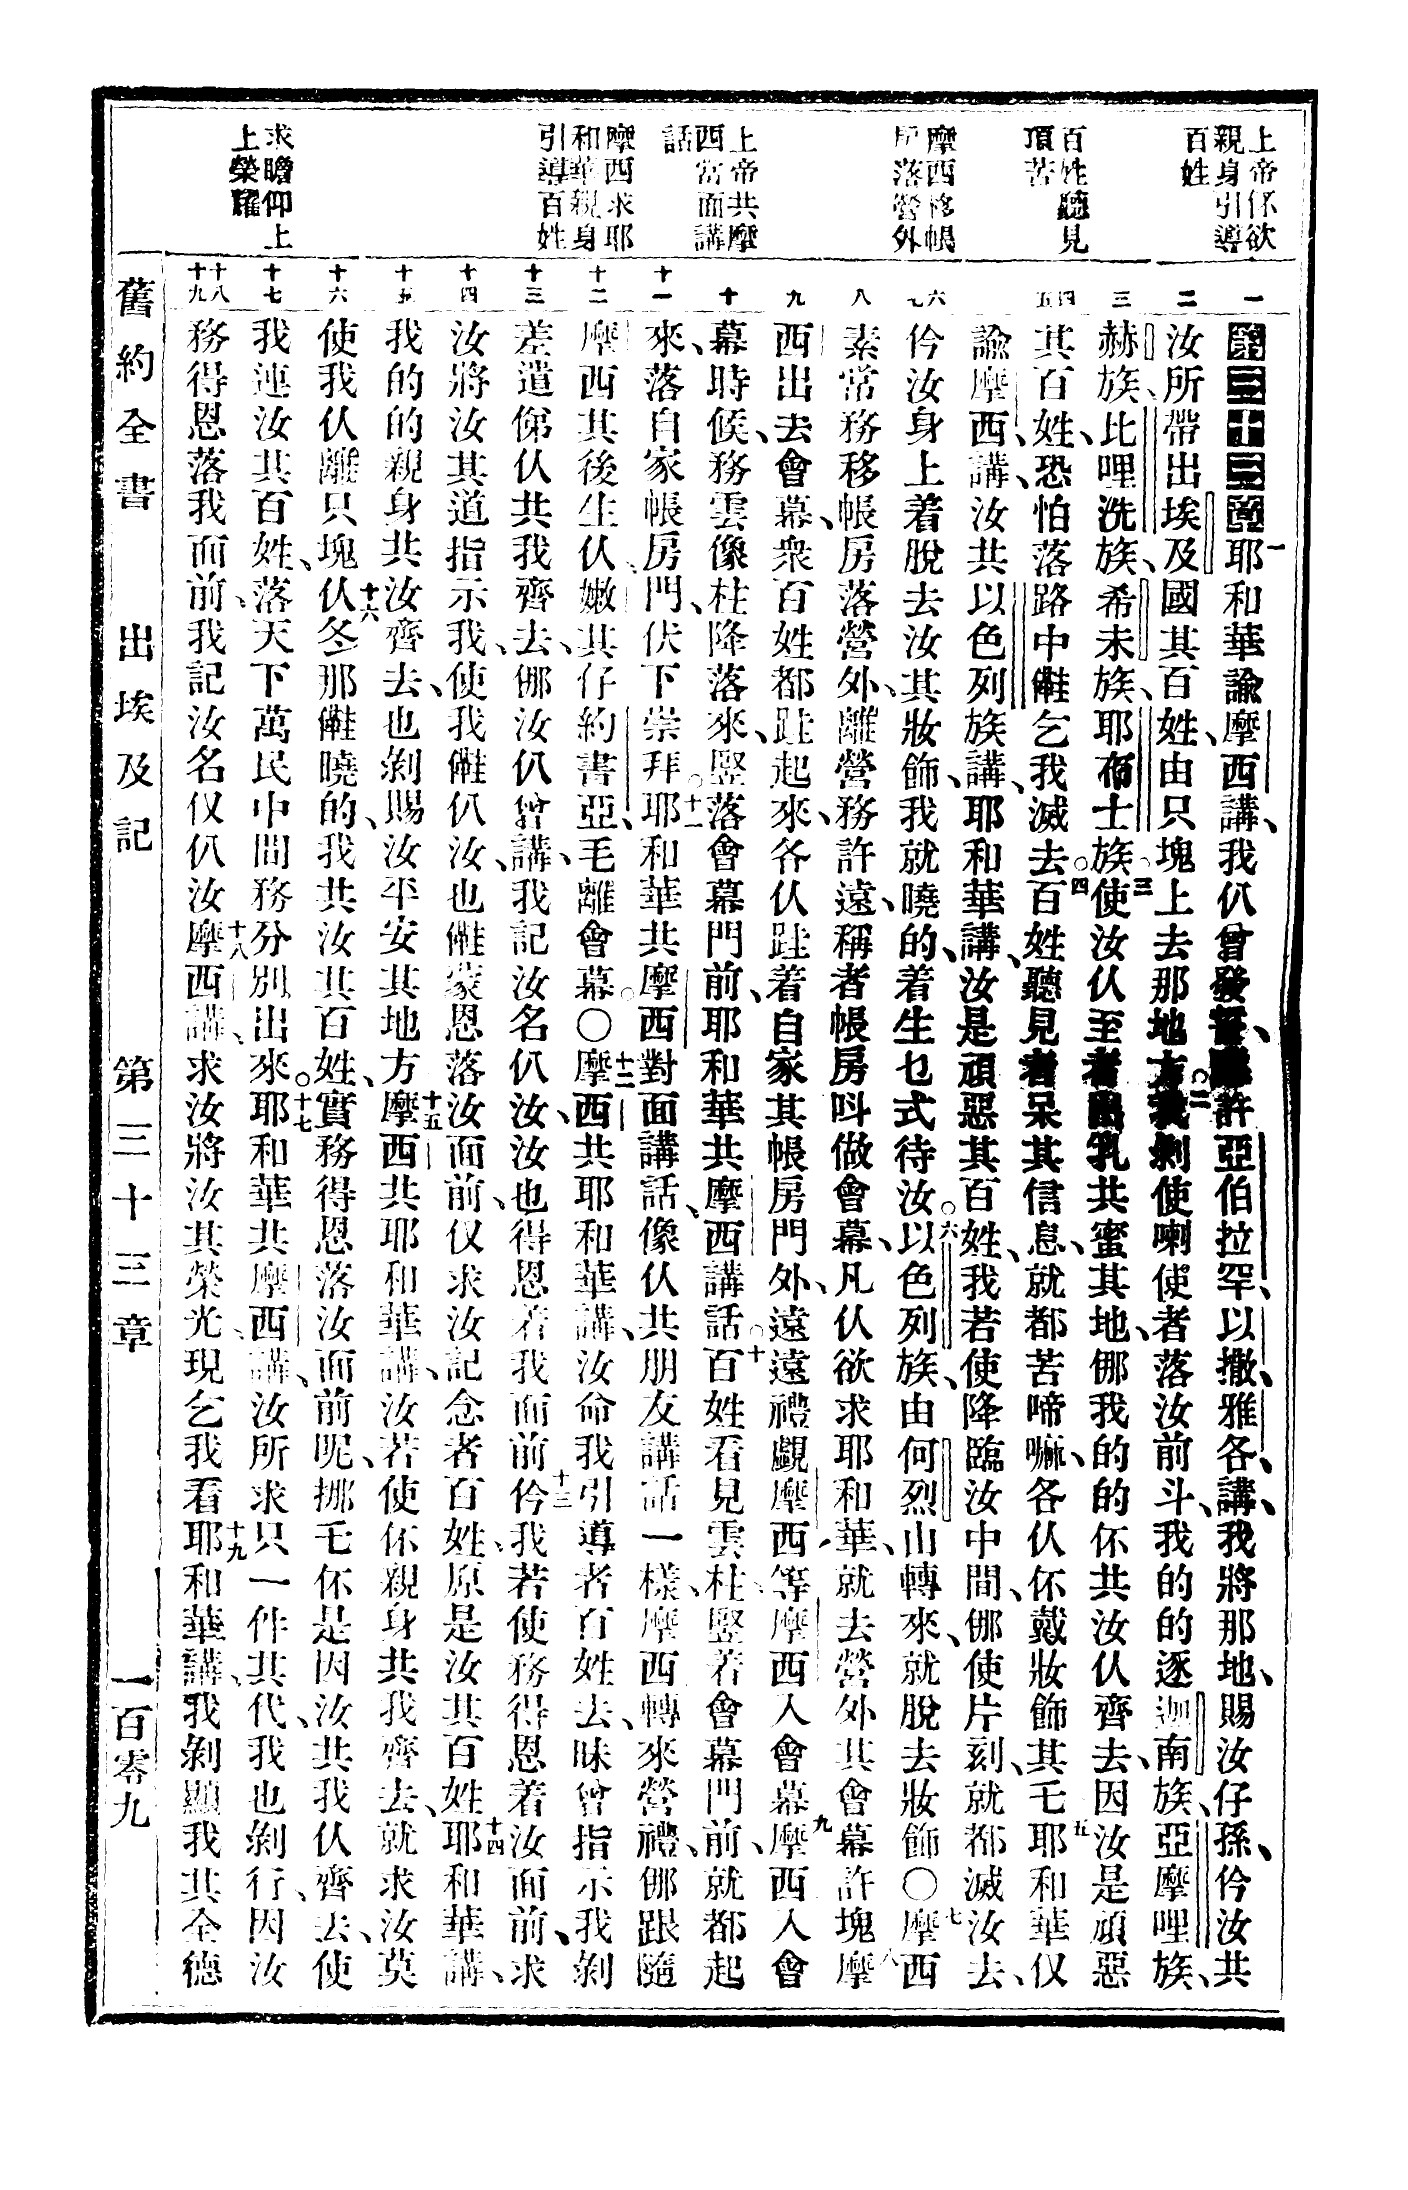 上帝伓欲
親身引導
百姓
百姓聽見
項苦
摩西移帳
房落營外
上帝共摩
西當面講
話
摩西求耶
和華親身
引導百姓
求瞻仰上
上榮耀
一
二
三
四 五
六 七
八
九
十
十一
十二
十三
十四
十五
十六
十七
十八 十九
第三十三章一耶和華諭摩西講、我仈曾發誓、應許亞伯拉罕、以撒、雅各、講、我將那地、賜汝仔孫、仱汝共
汝所帶出埃及國其百姓、由只塊上去那地方○二我剝使喇使者落汝前斗、我的的逐迦南族、亞摩哩族、
赫族、比哩洗族、希未族、耶布士族○三使汝仈至者出乳共蜜其地、㑚我的的伓共汝仈齊去、因汝是頑惡
其百姓、恐怕落路中㒕乞我滅去○四百姓聽見者呆其信息、就都苦啼嘛、各仈伓戴妝飾其乇五耶和華仅
諭摩西講、汝共以色列族講、耶和華講、汝是頑惡其百姓、我若使降臨汝中間、㑚使片刻、就都滅汝去、
仱汝身上着脫去汝其妝飾、我就曉的、着生乜式待汝○六以色列族、由何烈山轉來、就脫去妝飾○七摩西
素常務移帳房落營外、離營務許遠、稱者帳房呌做會幕、凡仈欲求耶和華、就去營外其會幕許塊八摩
西出去會幕、衆百姓都跬起來、各仈跬着自家其帳房門外、遠遠禮覷摩西等摩西入會幕九摩西入會
幕時候、務雲像柱降落來、竪落會幕門前、耶和華共摩西講話○十百姓看見雲柱竪着會幕門前、就都起
來、落自家帳房門、伏下崇拜○十一耶和華共摩西對面講話、像仈共朋友講話一樣、摩西轉來營禮、㑚跟隨
摩西其後生仈嫩其仔約書亞、毛離會幕○〇十二摩西共耶和華講、汝命我引導者百姓去、昧曾指示我剝
差遣俤仈共我齊去、㑚汝仈曾講、我記汝名仈汝、汝也得恩着我面前十三仱我若使務得恩着汝面前、求
汝將汝其道指示我、使我㒕仈汝、也㒕蒙恩落汝面前、仅求汝記念者百姓、原是汝其百姓十四耶和華講、
我的的親身共汝齊去、也剝賜汝平安其地方十五摩西共耶和華講、汝若使伓親身共我齊去、就求汝莫
使我仈離只塊十六仈冬那㒕曉的、我共汝其百姓、實務得恩落汝面前呢、挪乇伓是因汝共我仈齊去、使
我連汝其百姓、落天下萬民中間務分別出來○十七耶和華共摩西講、汝所求只一件其代、我也剝行、因汝
務得恩落我面前、我記汝名仅仈汝十八摩西講、求汝將汝其榮光、現乞我看十九耶和華講、我剝顯我其全德
舊約全書 出埃及記 第三十三章 一百零九